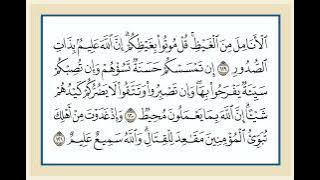 الْأَنَامِلَ مِنَ الْغَيْظِ ۚ قُلْ مُوتُوا بِغَيْظِكُمْ ۗ إِنَّ اللَّهَ عَلِيمٌ بِذَاتِ
الصُّدُورِ ﴿١١٩﴾ إِن تَمْسَسْكُمْ حَسَنَةٌ تَسُؤْهُمْ وَإِن تُصِبْكُمْ
سَيِّئَةٌ يَفْرَحُوا بِهَا ۖ وَإِن تَصْبِرُوا وَتَتَّقُوا لَا يَضُرُّكُمْ كَيْدُهُمْ
شَيْئًا ۗ إِنَّ اللَّهَ بِمَا يَعْمَلُونَ مُحِيطٌ ﴿١٢٠﴾ وَإِذْ غَدَوْتَ مِنْ أَهْلِكَ
تُبَوِّئُ الْمُؤْمِنِينَ مَقَاعِدَ لِلْقِتَالِ ۗ وَاللَّهُ سَمِيعٌ عَلِيمٌ ﴿١٢١﴾